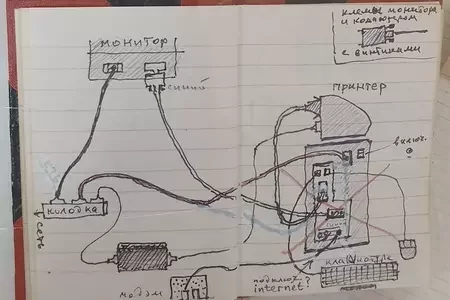 монитор
клеммы монитора
с винтиками
синий
принтер
включ.
колодка
сеть
модем
подключ.
internet?
клавиатура